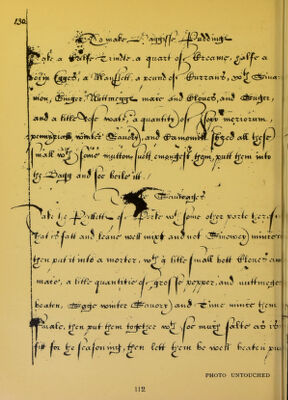 130
To make Haggisse Puddinge
Take a Calfe Trindle, a quart of Creame, halfe a
dozin Egges, a Manchett, a pound of Currans, wth Sina
mon, Ginger, Nuttmegge mace and Cloves, and Suger,
and a litle Rose water, a quantity of meriorum,
pennyriall, winter Savory, and Camomill shred all these
small wth some mutton suett emongest them, putt them into
the Bagg and soe boile itt
Sausages
Take the Fillett of Porke wth some other parte therof
that is fatt and leane well mixt and not Sinewey mince
then put it into a morter, wth a litle small Cloves an
mace, a litle quantitie of grosse pepper, and nuttmege
beaten, Sage winter Savory and Time mince them
smale, then put them together wth soe much salte as is
fitt for the seasoning, then lett them be well beaten
PHOTO UNTOUCHED
112